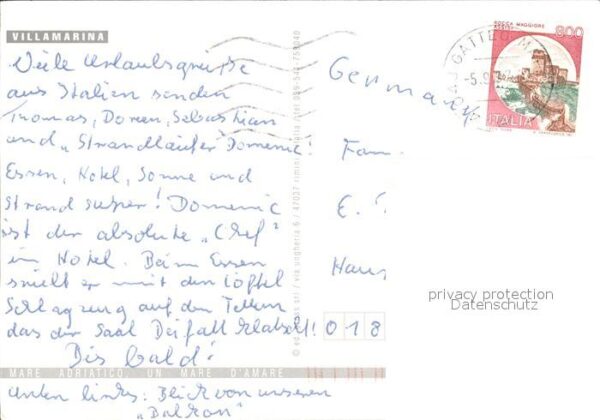 VILLAMARINA
Viele Urlaubsgrüße
aus Italien senden
Thomas, Doreen, Sebastian
und „Strandläufer" Domenic!
Essen, Hotel, Sonne und
Strand super! Domenic
ist der absolute „Chef"
im Hotel. Beim Essen
spielt er mit den Löffel
Schlagzeug auf den Tellern
das der Saal Beifall klatscht!
Bis bald!
MARE ADRIATICO, UN MARE D'AMARE
Unten links: Blick von unseren
„Balkon"
ROCCA MAGGIORE
ASSISI
800
ITALIA
GATTEO
Germany
Fam
E.
Haus
018
privacy protection
Datenschutz